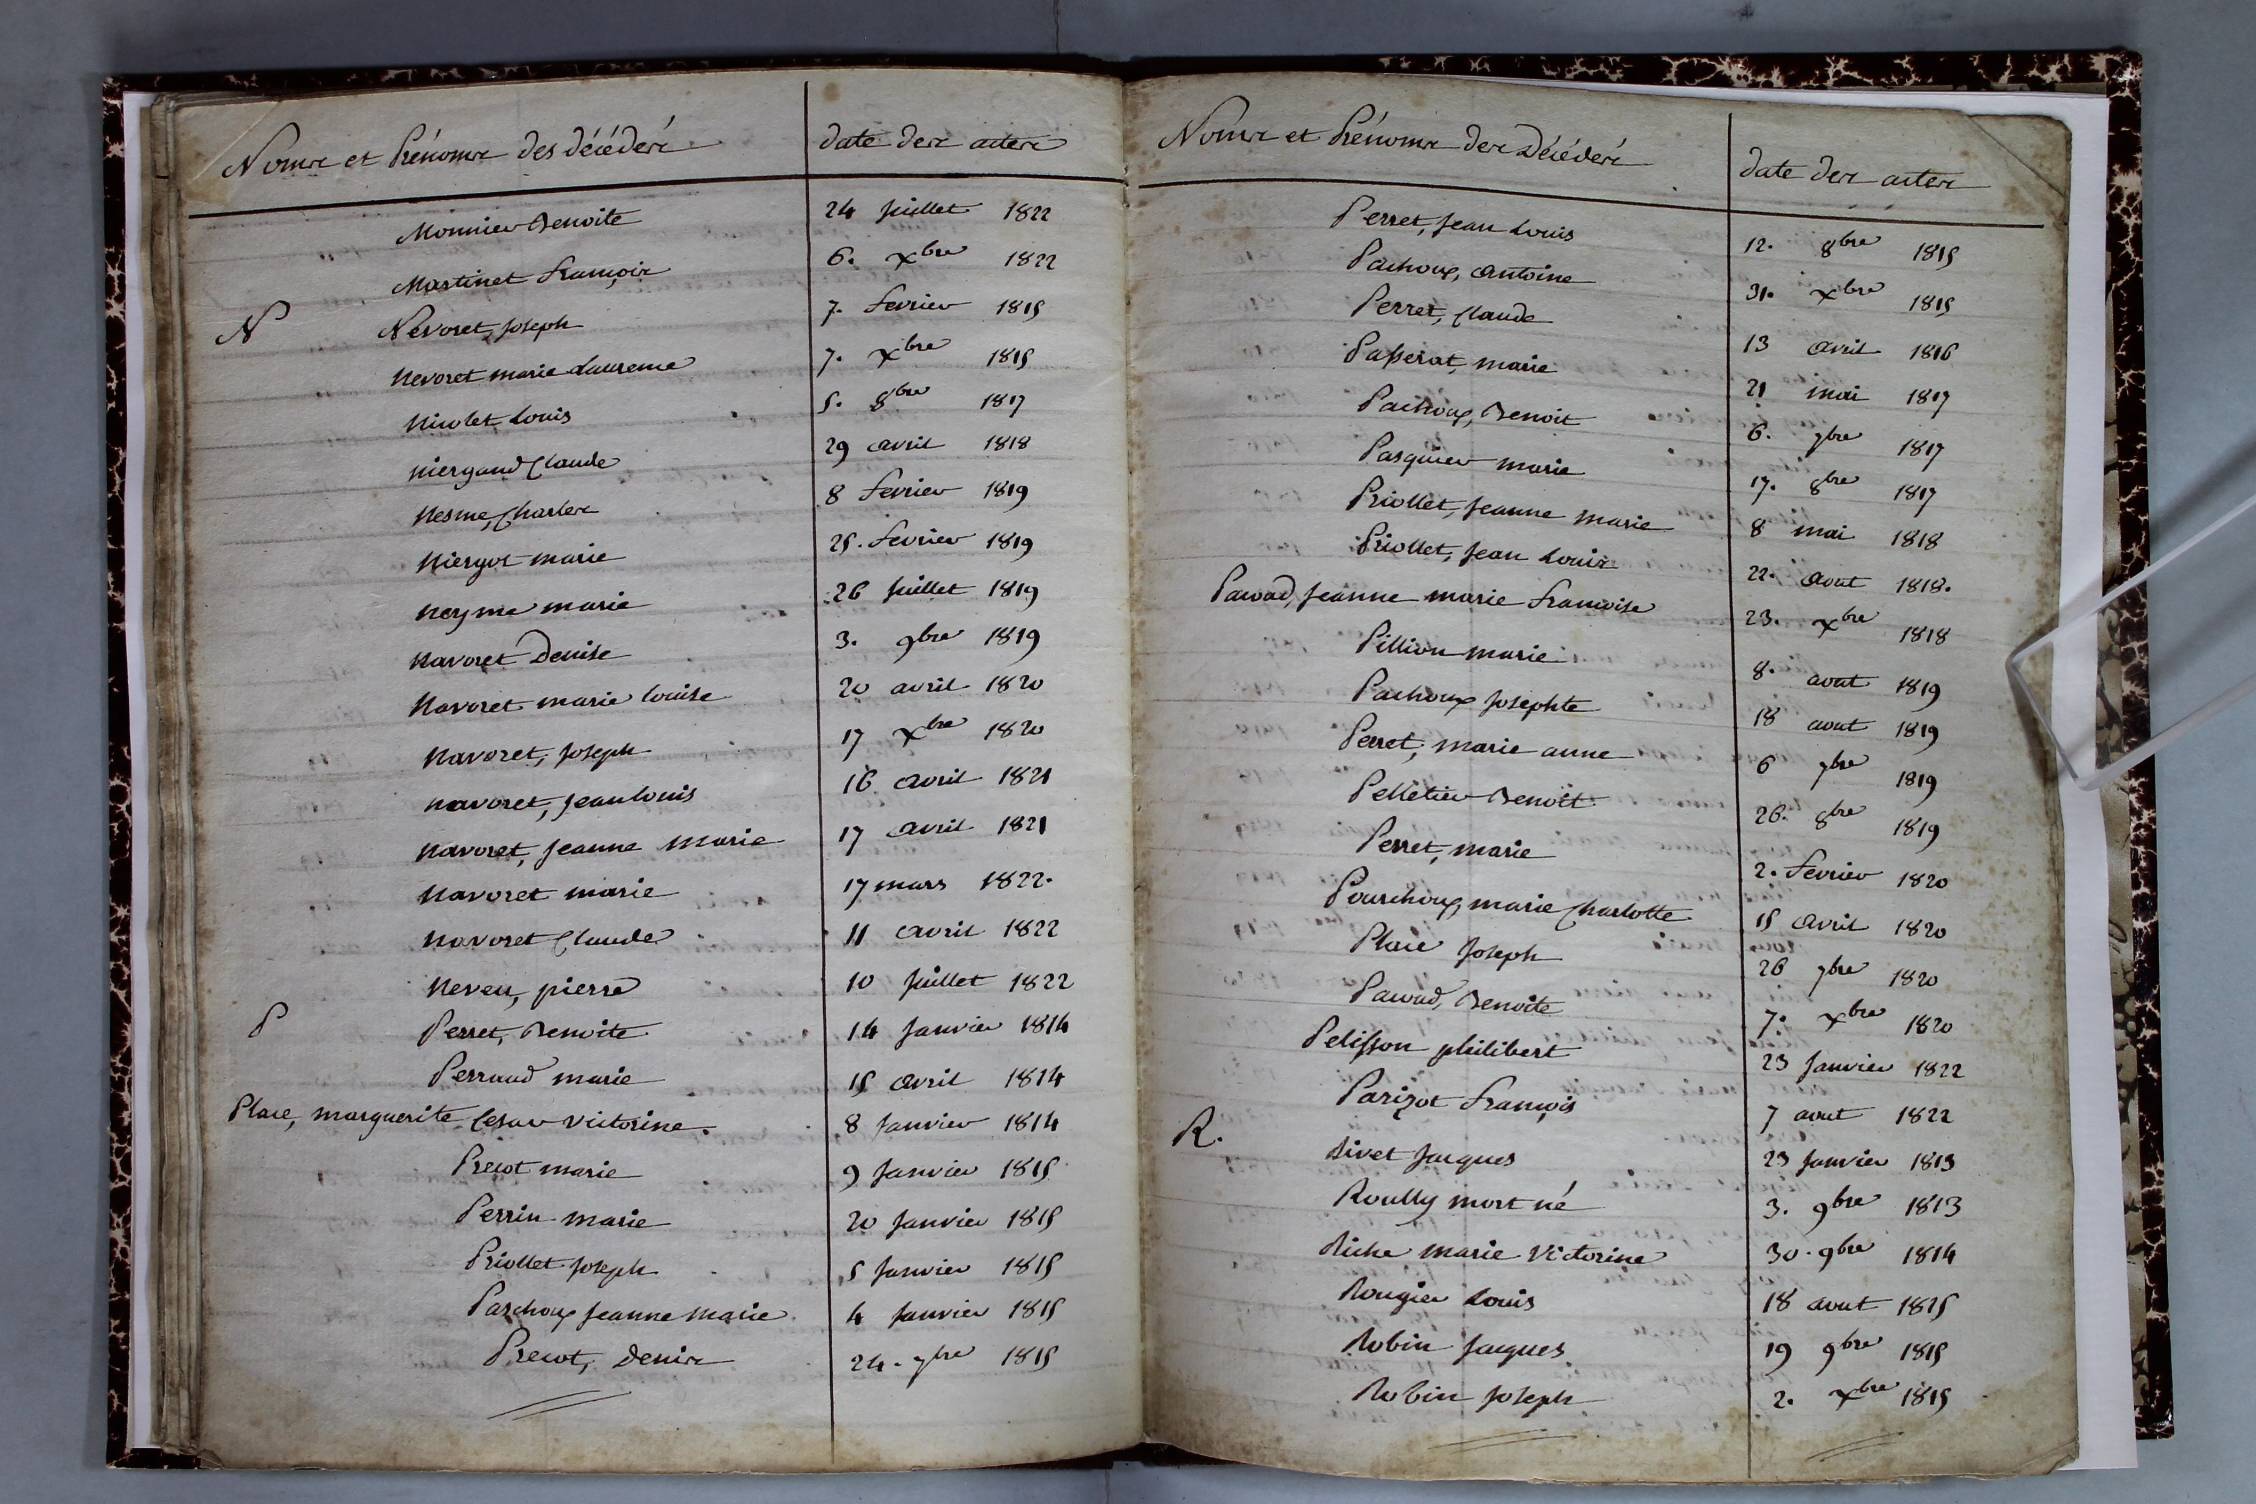 Noms et Prénoms des décédés date des actes
Monnier Benoite 24 Juillet 1822
Martinet François 6. Xbre 1822
N Névoret, Joseph 7. Fevrier 1815
Nevoret marie Laurence 7. Xbre 1815
Nicolet Louis 5. 8bre 1817
Niergaud Claude 29 avril 1818
Nesme, Charles 8 Fevrier 1819
Niergot marie 25. Fevrier 1819
Neyme marie 26 Juillet 1819
Navoret Denise 3. 9bre 1819
Navoret marie louise 20 avril 1820
Navoret, Joseph 17 Xbre 1820
Navoret, Jean louis 16 avril 1821
Navoret, Jeanne Marie 17 avril 1821
Navoret marie 17 mars 1822.
Navoret Claude 11 avril 1822
Neveu, pierre 10 Juillet 1822
P Perret, Benoite 14 Janvier 1814
Perraud marie 15 avril 1814
Place, marguerite Cesar victorine. 8 Janvier 1814
Precot marie 9 Janvier 1815
Perrin marie 20 Janvier 1815
Priollet Joseph 5 Janvier 1815
Paschoux Jeanne Marie 4 Janvier 1815
Precot, Denis 24. 7bre 1815
Noms et Prénoms des Décédés date des actes
Perret, Jean Louis 12. 8bre 1815
Pachoux, Antoine 31. Xbre 1815
Perret, Claude 13 avril 1816
Passerat, marie 21 mai 1817
Pachoux, Benoit 6. 7bre 1817
Pasquier marie 17. 8bre 1817
Priollet, Jeanne marie 8 mai 1818
Priollet, Jean Louis 22. aout 1818.
Pacoud, Jeanne marie Francoise 23. Xbre 1818
Pillion marie 8. aout 1819
Pachoux Josephte 18 aout 1819
Perret, marie anne 6 7bre 1819
Pelletier Benoit 26. 8bre 1819
Perret, marie 2. Fevrier 1820
Pourchoux, marie Charlotte 15 avril 1820
Place Joseph 26 7bre 1820
Pacoud, Benoite 7. Xbre 1820
Pelisson philibert 23 Janvier 1822
Parizot François 7 aout 1822
R. Rivet Jacques 23 Janvier 1813
Roully mort né 3. 9bre 1813
Riche marie Victorine 30. 9bre 1814
Rougier Louis 18 aout 1815
Robin Jacques 19 9bre 1815
Robin Joseph 2. Xbre 1815